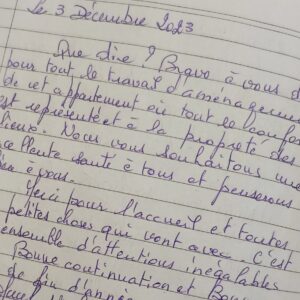 Le 3 Décembre 2023
Que dire ? Bravo à vous d
pour tout le travail d'aménagemen
de cet appartement où tout le confor
est représenté et à la propreté des
lieux. Nous vous souhaitons une
excellente santé à tous et penserons
à vous.
Merci pour l'accueil et toutes
petites choses qui vont avec. C'est
ensemble d'attentions inégalables
Bonne continuation et Bon
de fin d'année